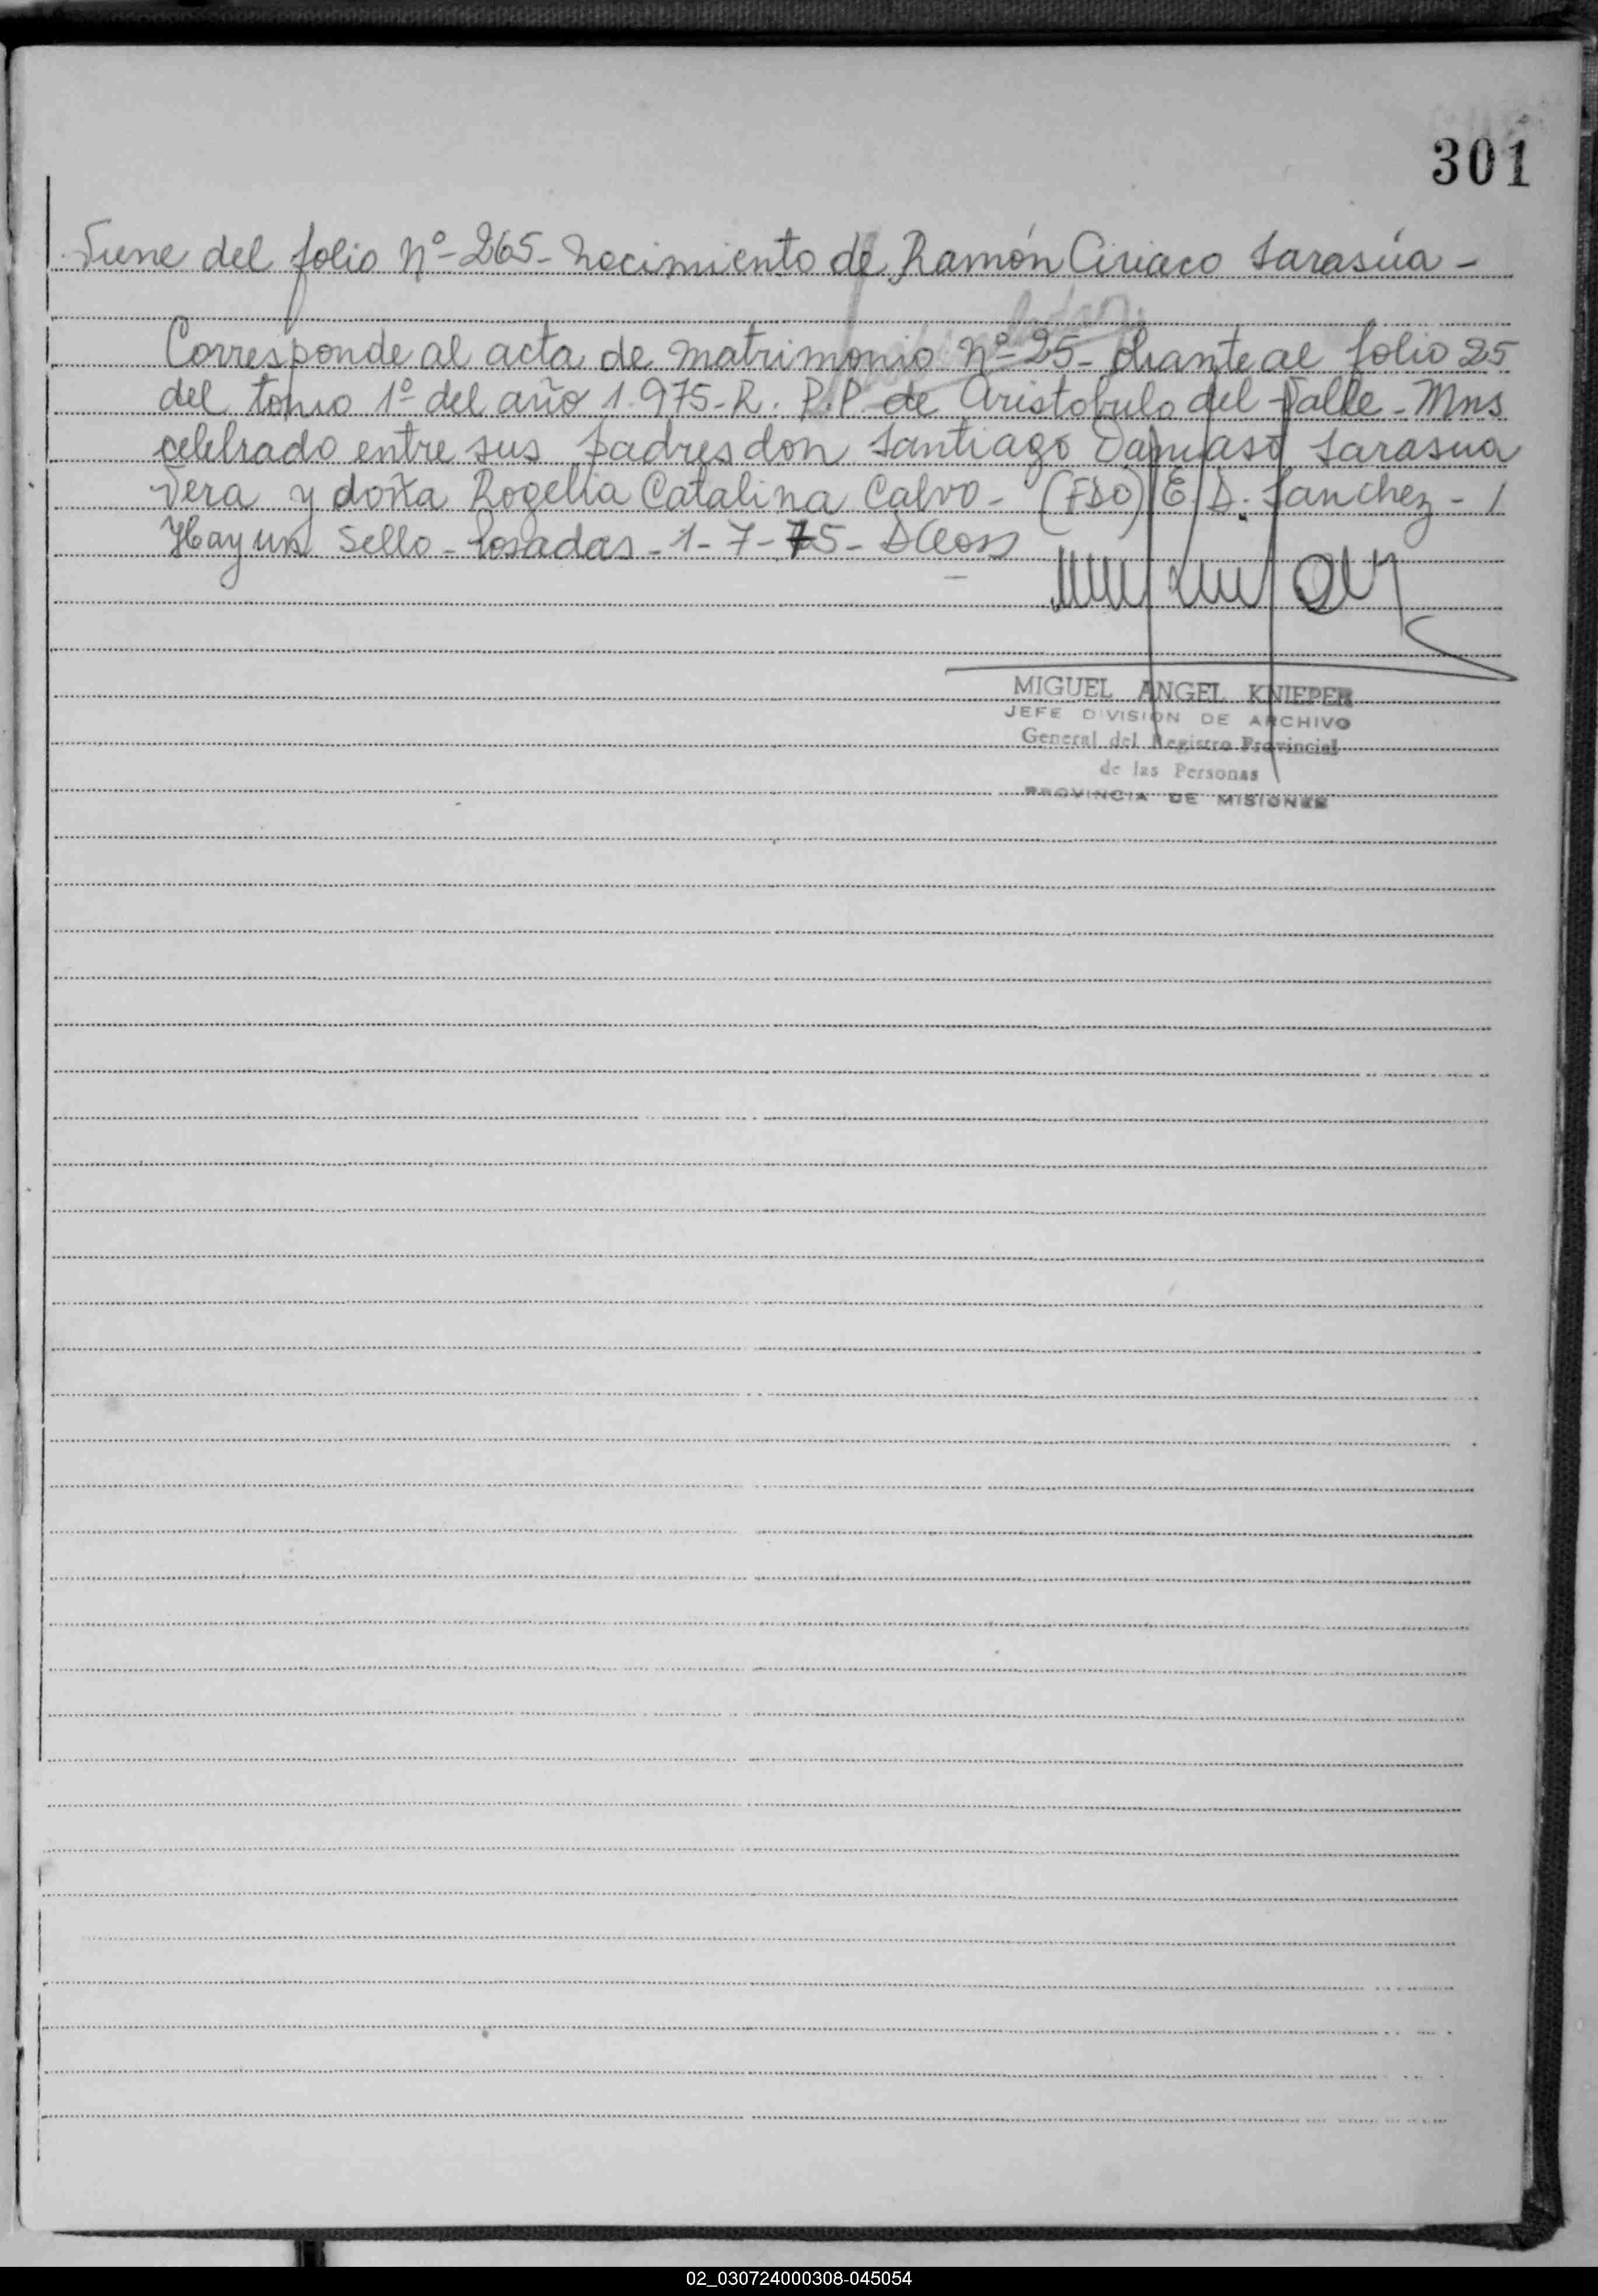 301
Viene del folio Nº-265- Nacimiento de Ramón Ciriaco Sarasúa -
Corresponde al acta de matrimonio Nº-25- obrante al folio 25
del tomo 1º del año 1.975- R. P. P. de Aristobulo del Valle - Mns
celebrado entre sus padres don Santiago Damaso Sarasua
Vera y doña Rogelia Catalina Calvo - (FDO) E. D. Sanchez - /
Hay un Sello - Posadas - 1 - 7 - 75 -
MIGUEL ANGEL KNIEPER
JEFE DIVISION DE ARCHIVO
General del Registro Provincial
de las Personas
PROVINCIA DE MISIONES
02_030724000308-045054